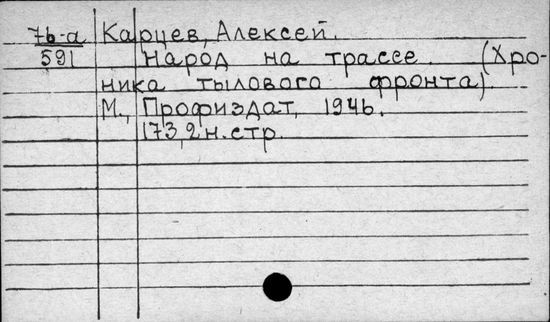 7б-а Карцев, Алексей.
591 Народ на трассе. (Хро-
ника тылового фронта).
М., Профиздат, 1946.
173,2 н. стр.